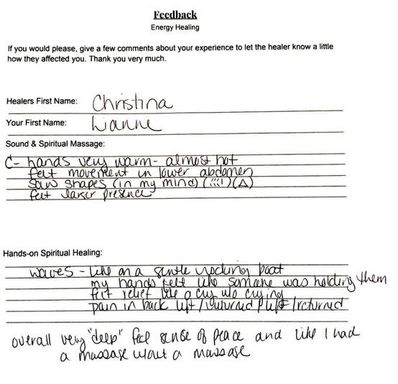 Feedback
Energy Healing
If you would please, give a few comments about your experience to let the healer know a little
how they affected you. Thank you very much.
Healers First Name: Christina
Your First Name: Lanne
Sound & Spiritual Massage:
C- hands very warm - almost hot
felt movement in lower abdomen
saw shapes (in my mind)
felt larger presence
Hands-on Spiritual Healing:
waves - like on a gentle rocking boat
my hands felt like someone was holding them
felt relief like a cry w/o crying
pain in back left / returned / left / returned
overall very "deep" feel sense of peace and like I had
a massage w/out a massage